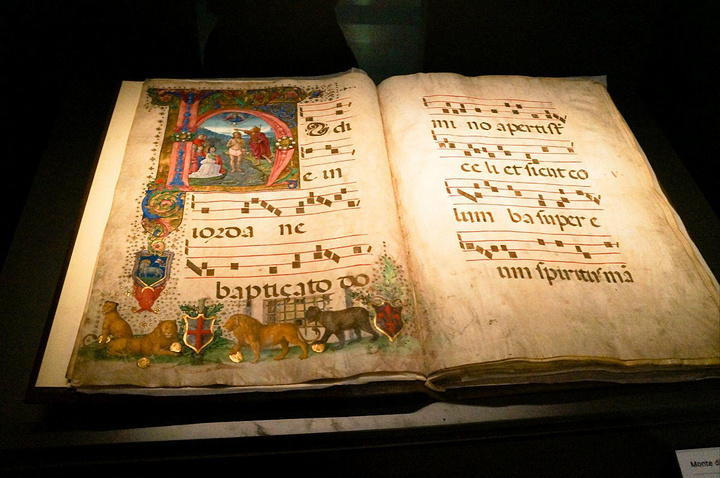 H O di
e in
iorda ne
bapticato do
mi no apertist
ce li et sicut co
lum ba super e
um spiritus mā
Monte d